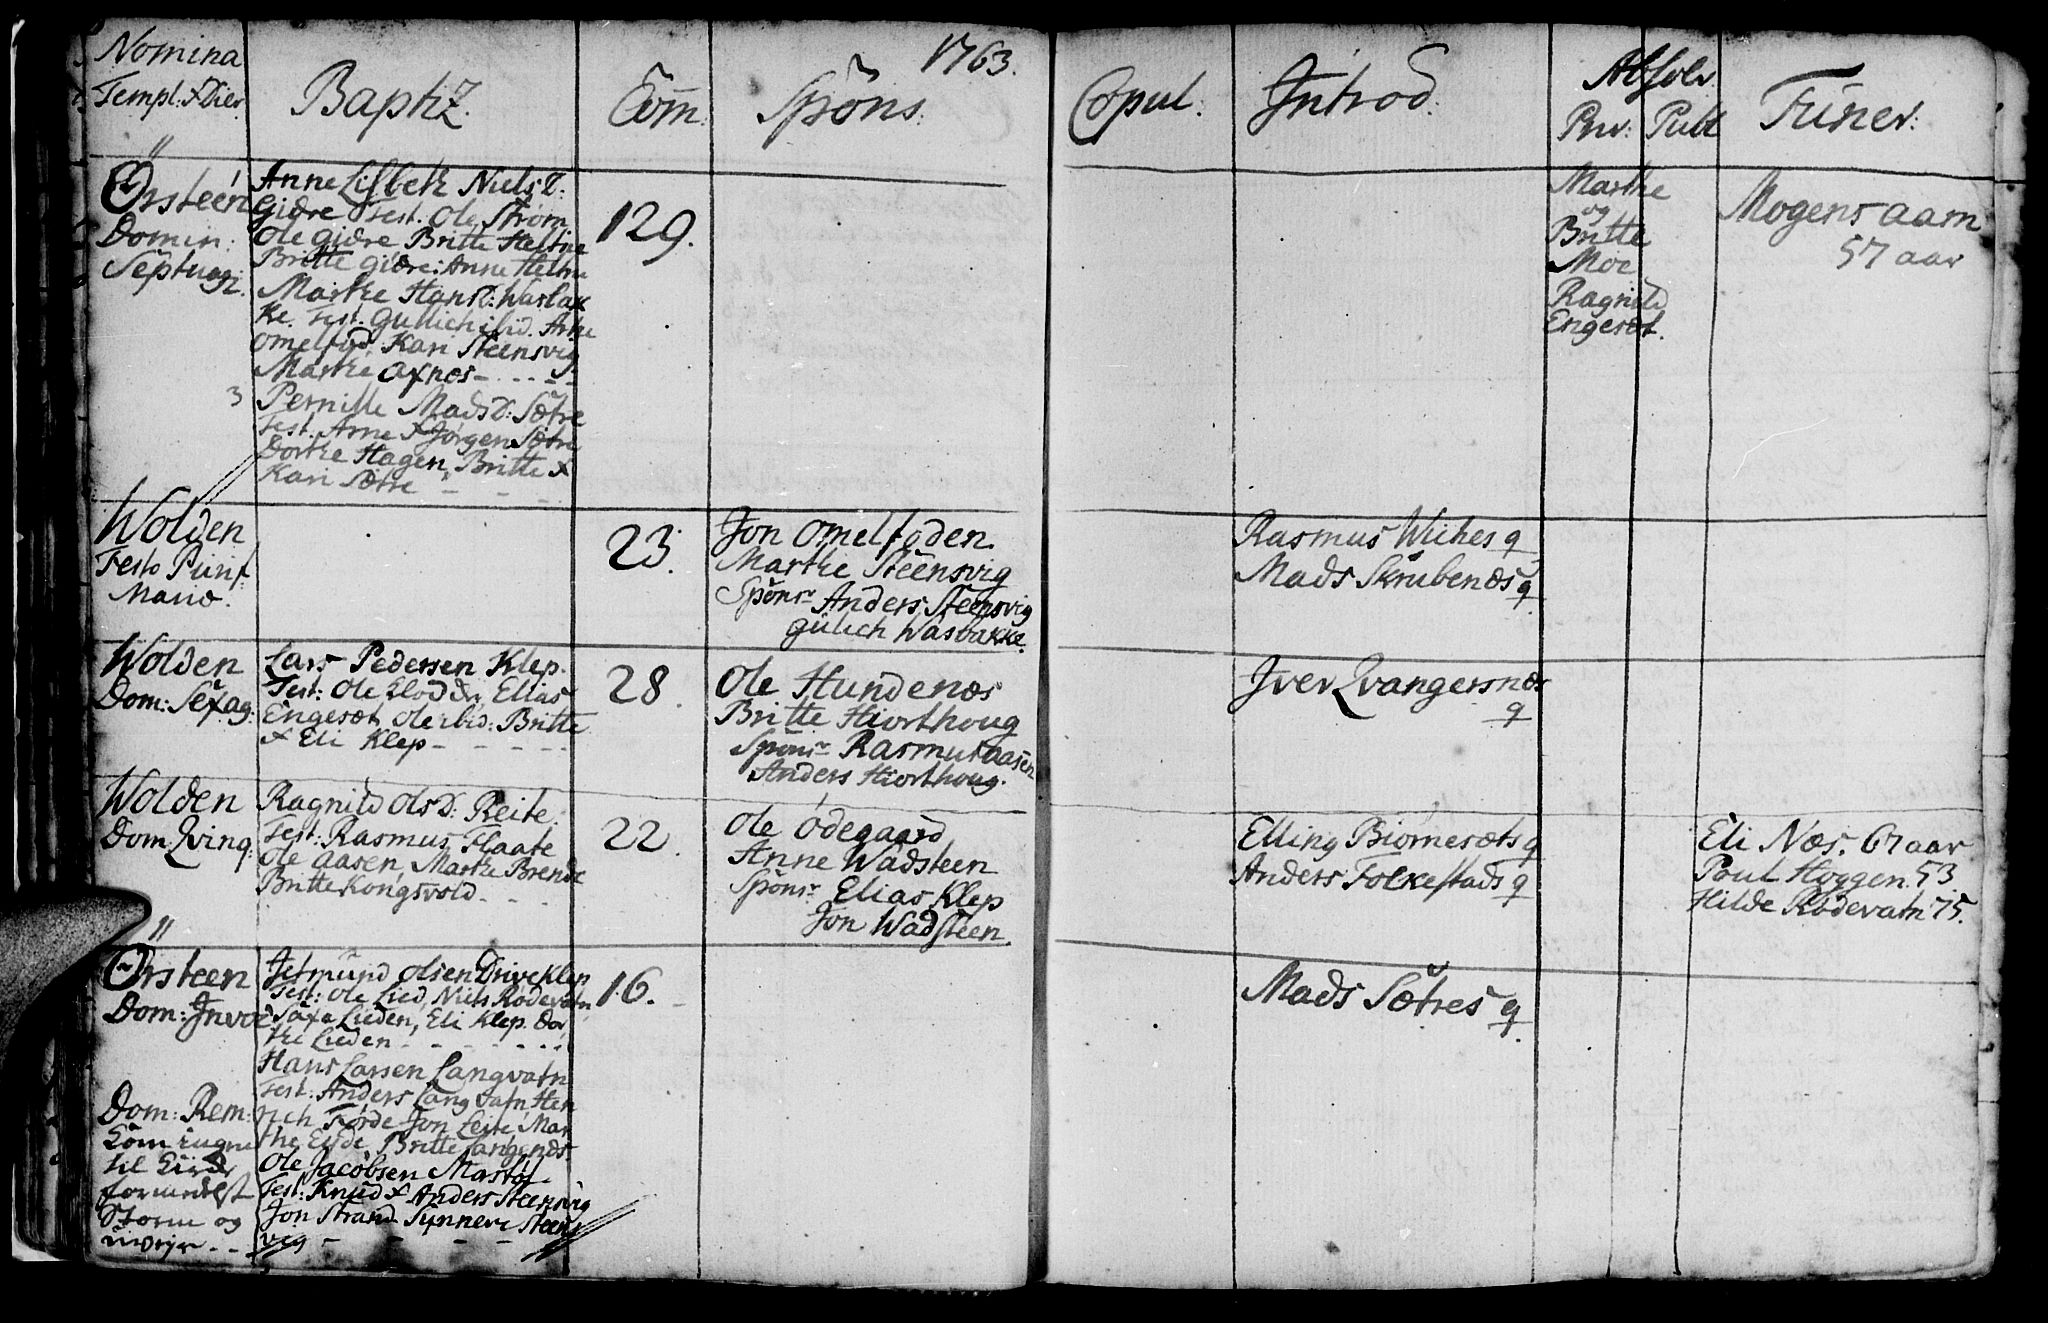 1763.
Nomina
Templ: & Dier
Baptiz.
Com:
Spons:
Copul:
Introd:
Absolv
Priv: Publ
Funer:
Ørsteen
Domin:
Septuag:
Anne Lisbeth Niels D:
Giære Test. Ole Strøm
Ole Giære Britte Heltne
Britte Giære: Anne Heltne
Marthe Hans D: Wasbak
ke. Test. Gullich ibid. Arne
Omelfod, Kari Steensvig
Marthe Axnes - - - - -
3 Pernille Mads D: Sætre
Test. Arne & Jørgen Sætre
Dorthe Hagen, Britte &
Kari Sætre - - -
129.
Marthe
og
Britte
Moe
Ragnild
Engeset.
Mogens Aam
57 aar
Wolden
Festo Purif:
Mariæ.
23.
Jon Omelfoden.
Marthe Steensvig
Sponsr Anders Steensvig
Gulich Wasbakke.
Rasmus Wiches q
Mads Skrubenæs q
Wolden
Dom: Sexag:
Lars Pedersen Klep.
Test: Ole Elodder, Elias
Engeset, Ole ibid: Britte
& Eli Klep - - - - -
28.
Ole Hundenæs
Britte Hiorthoug
Sponsr Rasmus Aasen
Anders Hiorthoug.
Iver Qvangersnes
q
Wolden
Dom: Qvinq:
Ragnild Ols D: Reite.
Test: Rasmus Flaate
Ole Aasen, Marthe Brende
Britte Kongsvold - - -
22.
Ole Ødegaard
Anne Wadsteen
Sponsr Elias Klep
Jon Wadsteen.
Elling Biørnesæts q
Anders Folkestads q
Eli Næs. 67 aar
Poul Hoggen. 53
Hilde Rødevatn 75.
Ørsteen
Dom: Invoc
Jetmund Olsen Drive Klep
Test: Ole Lied, Niels Rødevatn,
Saxe Lieden, Eli Klep. Dor
the Lieden - - - - - -
Hans Larsen Langvatn
Test: Anders Langvatn Hen
rich Førde Jon Leite Mar
the Eyde, Britte Langenes.
Ole Jacobsen Masføl
Test: Knud & Anders Steensvig
Jon Strand Synneve Steens
vig - - - -
16.
Mads Sætres q.
Dom: Rem:
Kom ingen
til Kirke
formedelst
Storm og
uveyr - -